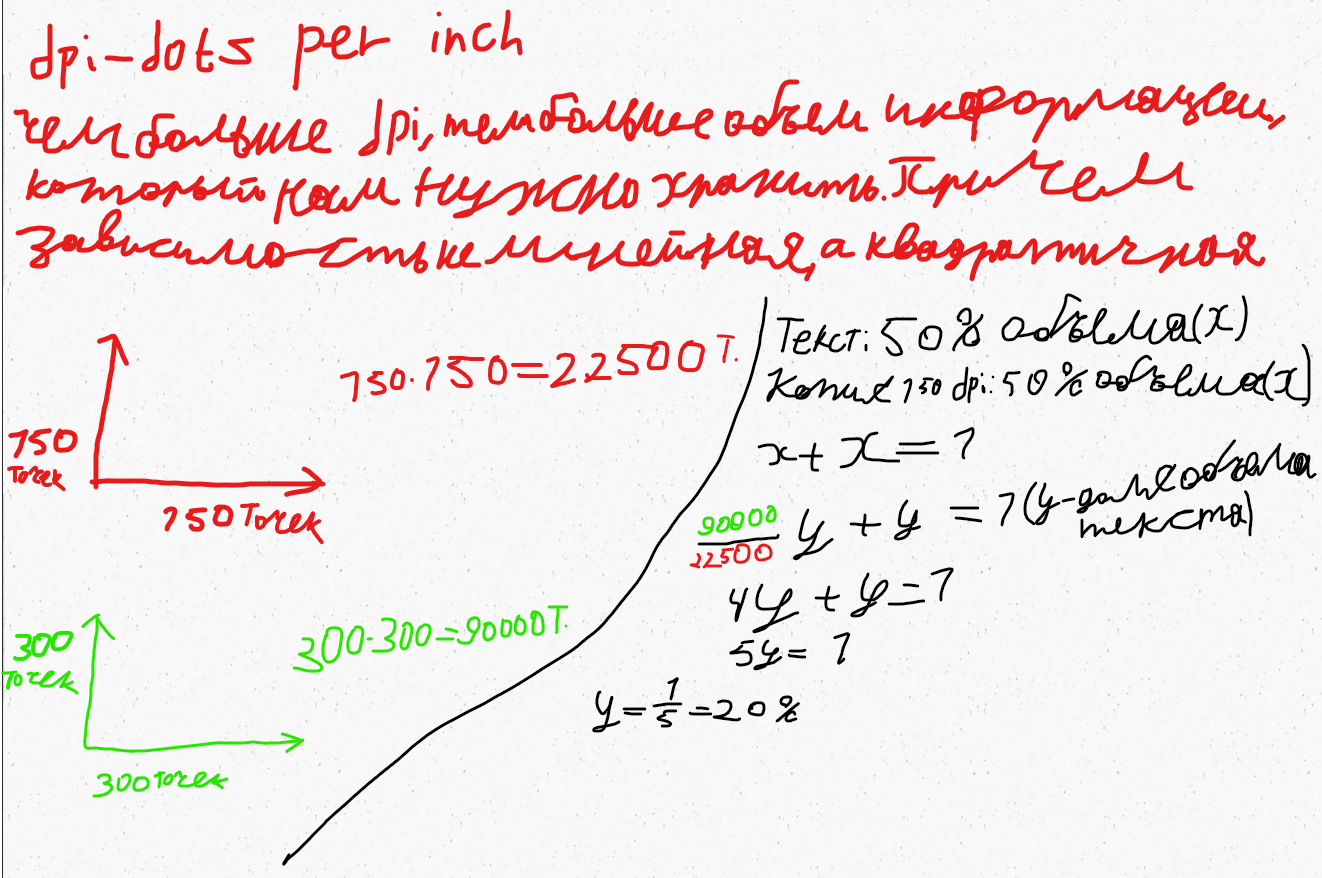 dpi-dots per inch
чем больше dpi, тем больше объем информации,
который нам нужно хранить. Причем
зависимость не линейная, а квадратичная
150·150=22500 т.
150
точек
150 точек
300·300=90000 т.
300
точек
300 точек
Текст: 50% объема(x)
Копия 150 dpi: 50% объема(x)
x+x=1
90000/22500 y + y = 1 (y-доля объема
текста)
4y + y = 1
5y = 1
y = 1/5 = 20%